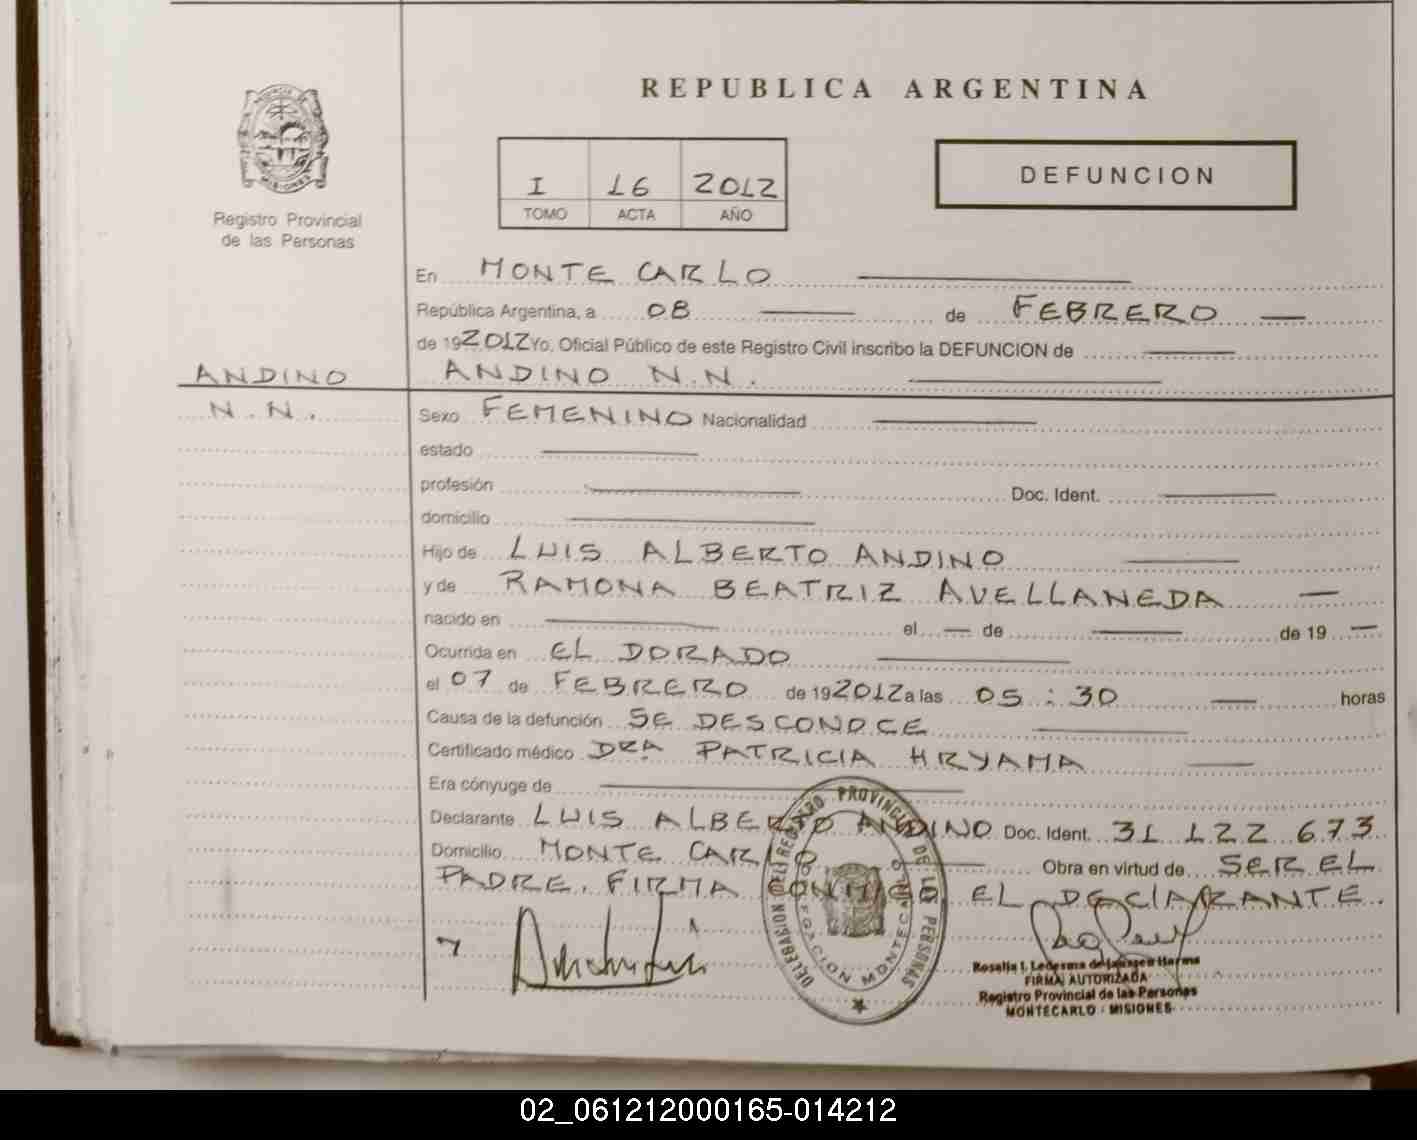 REPUBLICA ARGENTINA
PROVINCIA
MISIONES
Registro Provincial
de las Personas
I 16 2012
TOMO ACTA AÑO
DEFUNCION
En MONTE CARLO
República Argentina, a 08 de FEBRERO
de 192012 Yo, Oficial Público de este Registro Civil inscribo la DEFUNCION de
ANDINO N.N.
ANDINO
N.N.
Sexo FEMENINO Nacionalidad
estado
profesión Doc. Ident.
domicilio
Hijo de LUIS ALBERTO ANDINO
y de RAMONA BEATRIZ AVELLANEDA
nacido en el de de 19
Ocurrida en EL DORADO
el 07 de FEBRERO de 192012 a las 05:30 horas
Causa de la defunción SE DESCONOCE
Certificado médico DRA PATRICIA HRYAMA
Era cónyuge de
Declarante LUIS ALBERTO ANDINO Doc. Ident. 31 122 673
Domicilio MONTE CARLO Obra en virtud de SER EL
PADRE. FIRMA CONMIGO EL DECLARANTE.
DELEGACION DEL REGISTRO PROVINCIAL DE LAS PERSONAS
DELEGACION MONTECARLO
Rosalia I. Ledesma de
FIRMA AUTORIZADA
Registro Provincial de las Personas
MONTECARLO - MISIONES
02_061212000165-014212